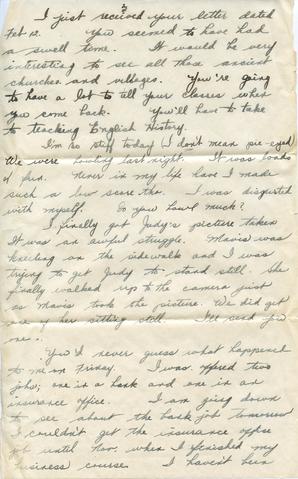 3
I just received your letter dated
Feb 12. You seemed to have had
a swell time. It would be very
interesting to see all those ancient
churches and villages. You're going
to have a lot to tell your classes when
you come back. You'll have to take
to teaching English History.
I'm so stiff today I don't mean pie-eyed
We were bowling last night. It was loads
of fun. Never in my life have I made
such a low score tho. I was disgusted
with myself. Do you bowl much?
I finally got Judy's picture taken
It was an awful struggle. Mavis was
kneeling on the sidewalk and I was
trying to get Judy to stand still. She
finally walked up to the camera just
as Mavis took the picture. We did get
one of her sitting still. I'll send you
one.
You'd never guess what happened
to me on Friday. I was offered two
jobs; one in a bank and one in an
insurance office. I am going down
to see about the bank job tomorrow
I couldn't get the insurance office
job until Nov. when I finished my
business course. I haven't been